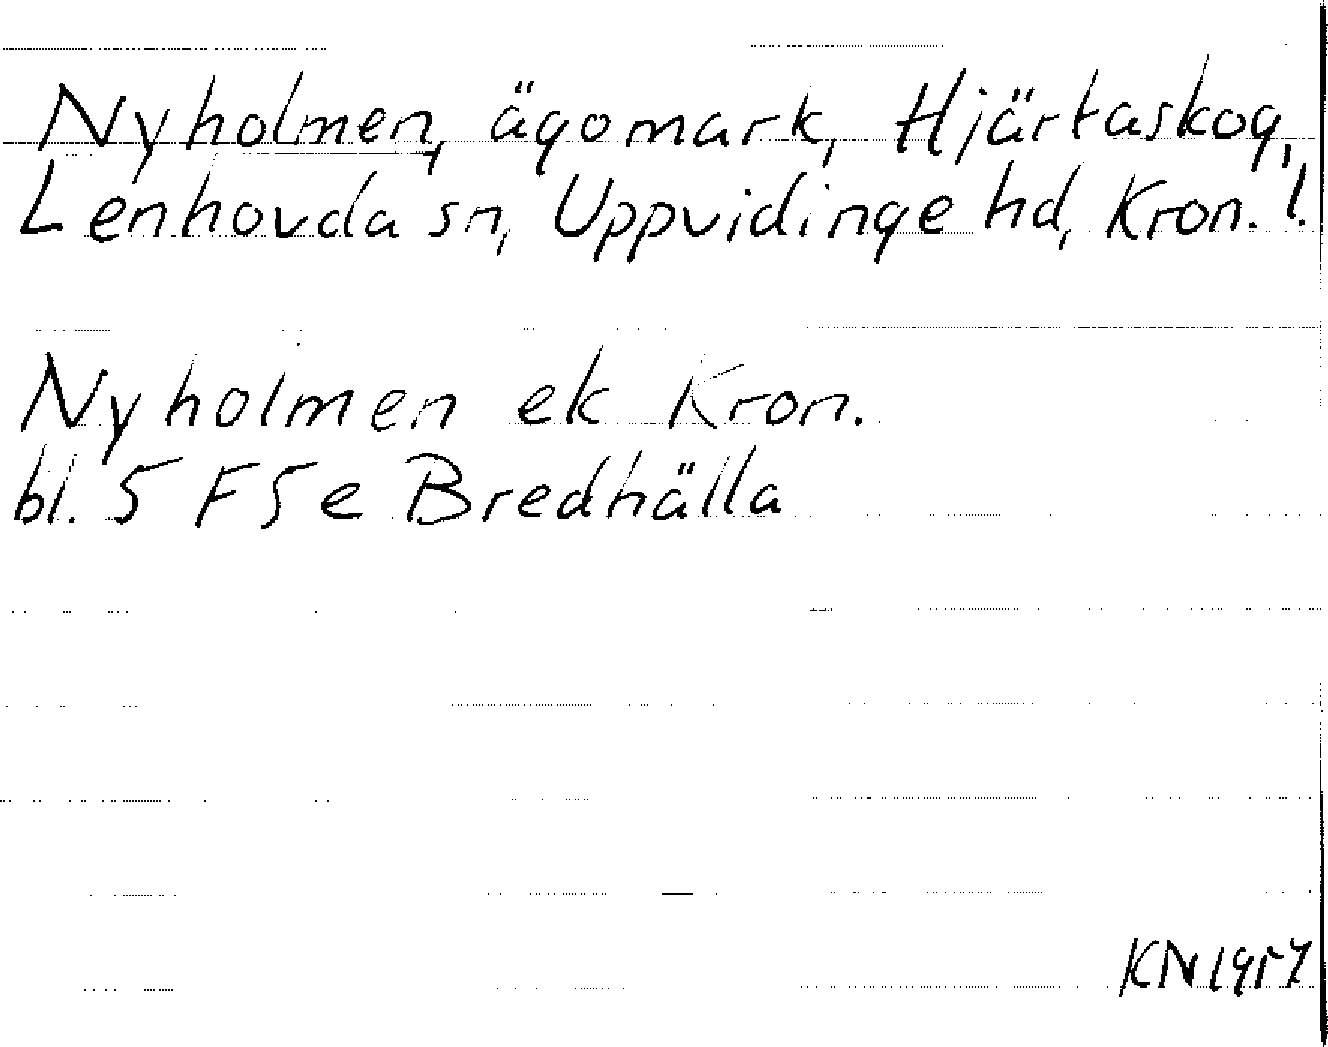 Nyholmen, ägomark, Hjärtaskog,
Lenhovda sn, Uppvidinge hd, Kron. l.
Nyholmen ek Kron.
bl. 5 F 5 e Bredhälla
KN 1957